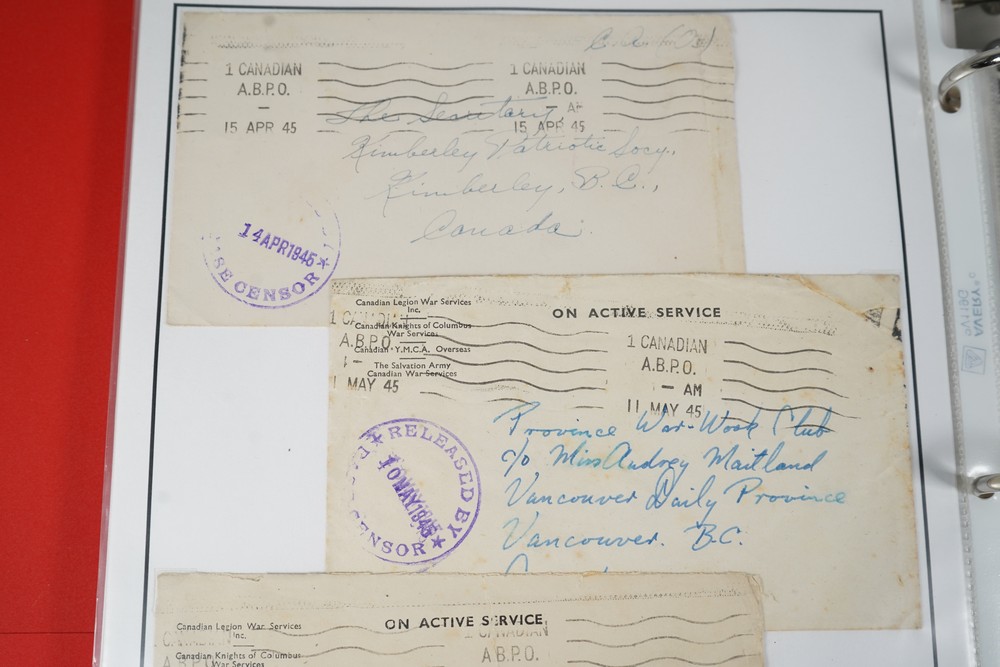 1 CANADIAN
A.B.P.O.
—
15 APR 45
1 CANADIAN
A.B.P.O.
— AM
15 APR 45
The Secretary,
Kimberley Patriotic Socy.,
Kimberley, B.C.,
Canada.
14 APR 1945
BASE CENSOR
Canadian Legion War Services
Inc.
Canadian Knights of Columbus
War Services
Canadian Y.M.C.A. Overseas
The Salvation Army
Canadian War Services
ON ACTIVE SERVICE
1 CANADIAN
A.B.P.O.
—
1 MAY 45
1 CANADIAN
A.B.P.O.
— AM
11 MAY 45
RELEASED BY
10 MAY 1945
CENSOR
Province War-Work Club
c/o Miss Audrey Maitland
Vancouver Daily Province
Vancouver. B.C.
Canadian Legion War Services
Inc.
Canadian Knights of Columbus
War Services
ON ACTIVE SERVICE
1 CANADIAN
A.B.P.O.
AVERY